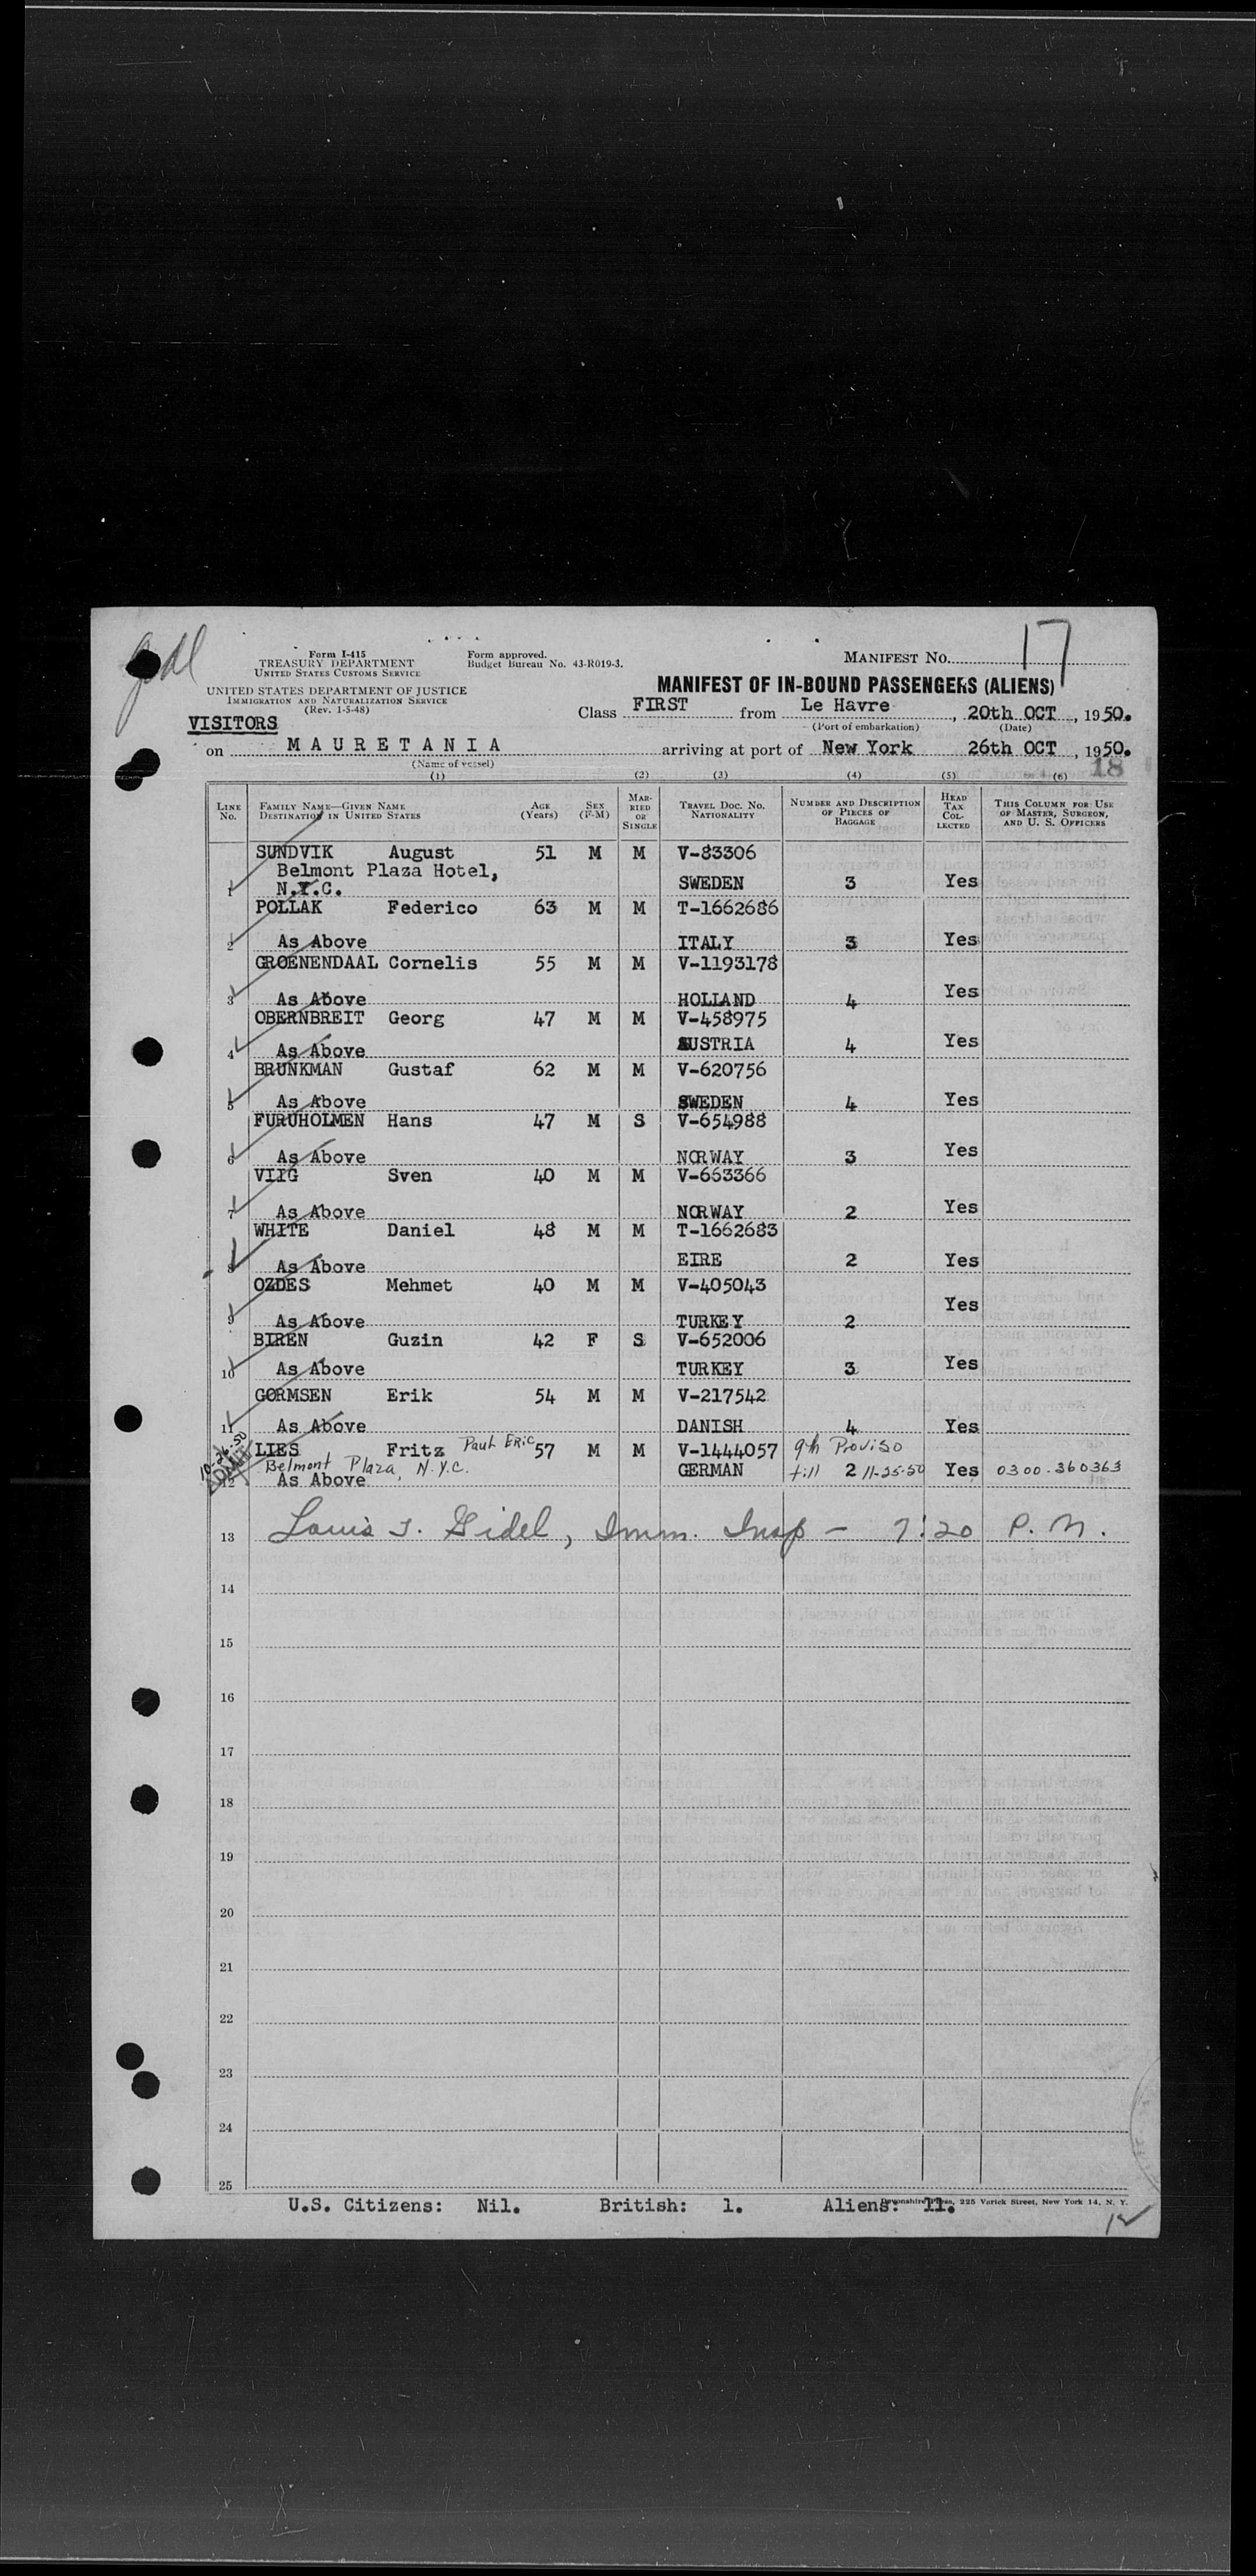 17
Form I-415
TREASURY DEPARTMENT
UNITED STATES CUSTOMS SERVICE
Form approved.
Budget Bureau No. 43-R019-3.
MANIFEST NO.
UNITED STATES DEPARTMENT OF JUSTICE
IMMIGRATION AND NATURALIZATION SERVICE
(Rev. 1-5-48)
MANIFEST OF IN-BOUND PASSENGERS (ALIENS)
VISITORS
Class FIRST from Le Havre, 20th OCT, 1950.
(Port of embarkation) (Date)
on MAURETANIA arriving at port of New York 26th OCT, 1950.
(Name of vessel)
18
(1) (2) (3) (4) (5) (6)
LINE No. FAMILY NAME—GIVEN NAME DESTINATION IN UNITED STATES AGE (Years) SEX (F-M) MARRIED OR SINGLE TRAVEL DOC. NO. NATIONALITY NUMBER AND DESCRIPTION OF PIECES OF BAGGAGE HEAD TAX COLLECTED THIS COLUMN FOR USE OF MASTER, SURGEON, AND U. S. OFFICERS
SUNDVIK August 51 M M V-83306
Belmont Plaza Hotel,
1 N.Y.C. SWEDEN 3 Yes
POLLAK Federico 63 M M T-1662686
2 As Above ITALY 3 Yes
GROENENDAAL Cornelis 55 M M V-1193178
3 As Above HOLLAND 4 Yes
OBERNBREIT Georg 47 M M V-458975
4 As Above AUSTRIA 4 Yes
BRUNKMAN Gustaf 62 M M V-620756
5 As Above SWEDEN 4 Yes
FURUHOLMEN Hans 47 M S V-654988
6 As Above NORWAY 3 Yes
VIIG Sven 40 M M V-663366
7 As Above NORWAY 2 Yes
WHITE Daniel 48 M M T-1662683
8 As Above EIRE 2 Yes
OZDES Mehmet 40 M M V-405043
9 As Above TURKEY 2 Yes
BIREN Guzin 42 F S V-652006
10 As Above TURKEY 3 Yes
GORMSEN Erik 54 M M V-217542
11 As Above DANISH 4 Yes
10-26-50
ADMIT
LIES Fritz Paul Eric 57 M M V-1444057 9th Proviso
Belmont Plaza, N.Y.C. GERMAN till 2 11-25-50 Yes 0300-360363
12 As Above
13 Louis J. Gidel, Imm. Insp - 7:20 P.M.
14
15
16
17
18
19
20
21
22
23
24
25
U.S. Citizens: Nil. British: 1. Aliens: 11.
Devonshire Press, 225 Varick Street, New York 14, N. Y.
12